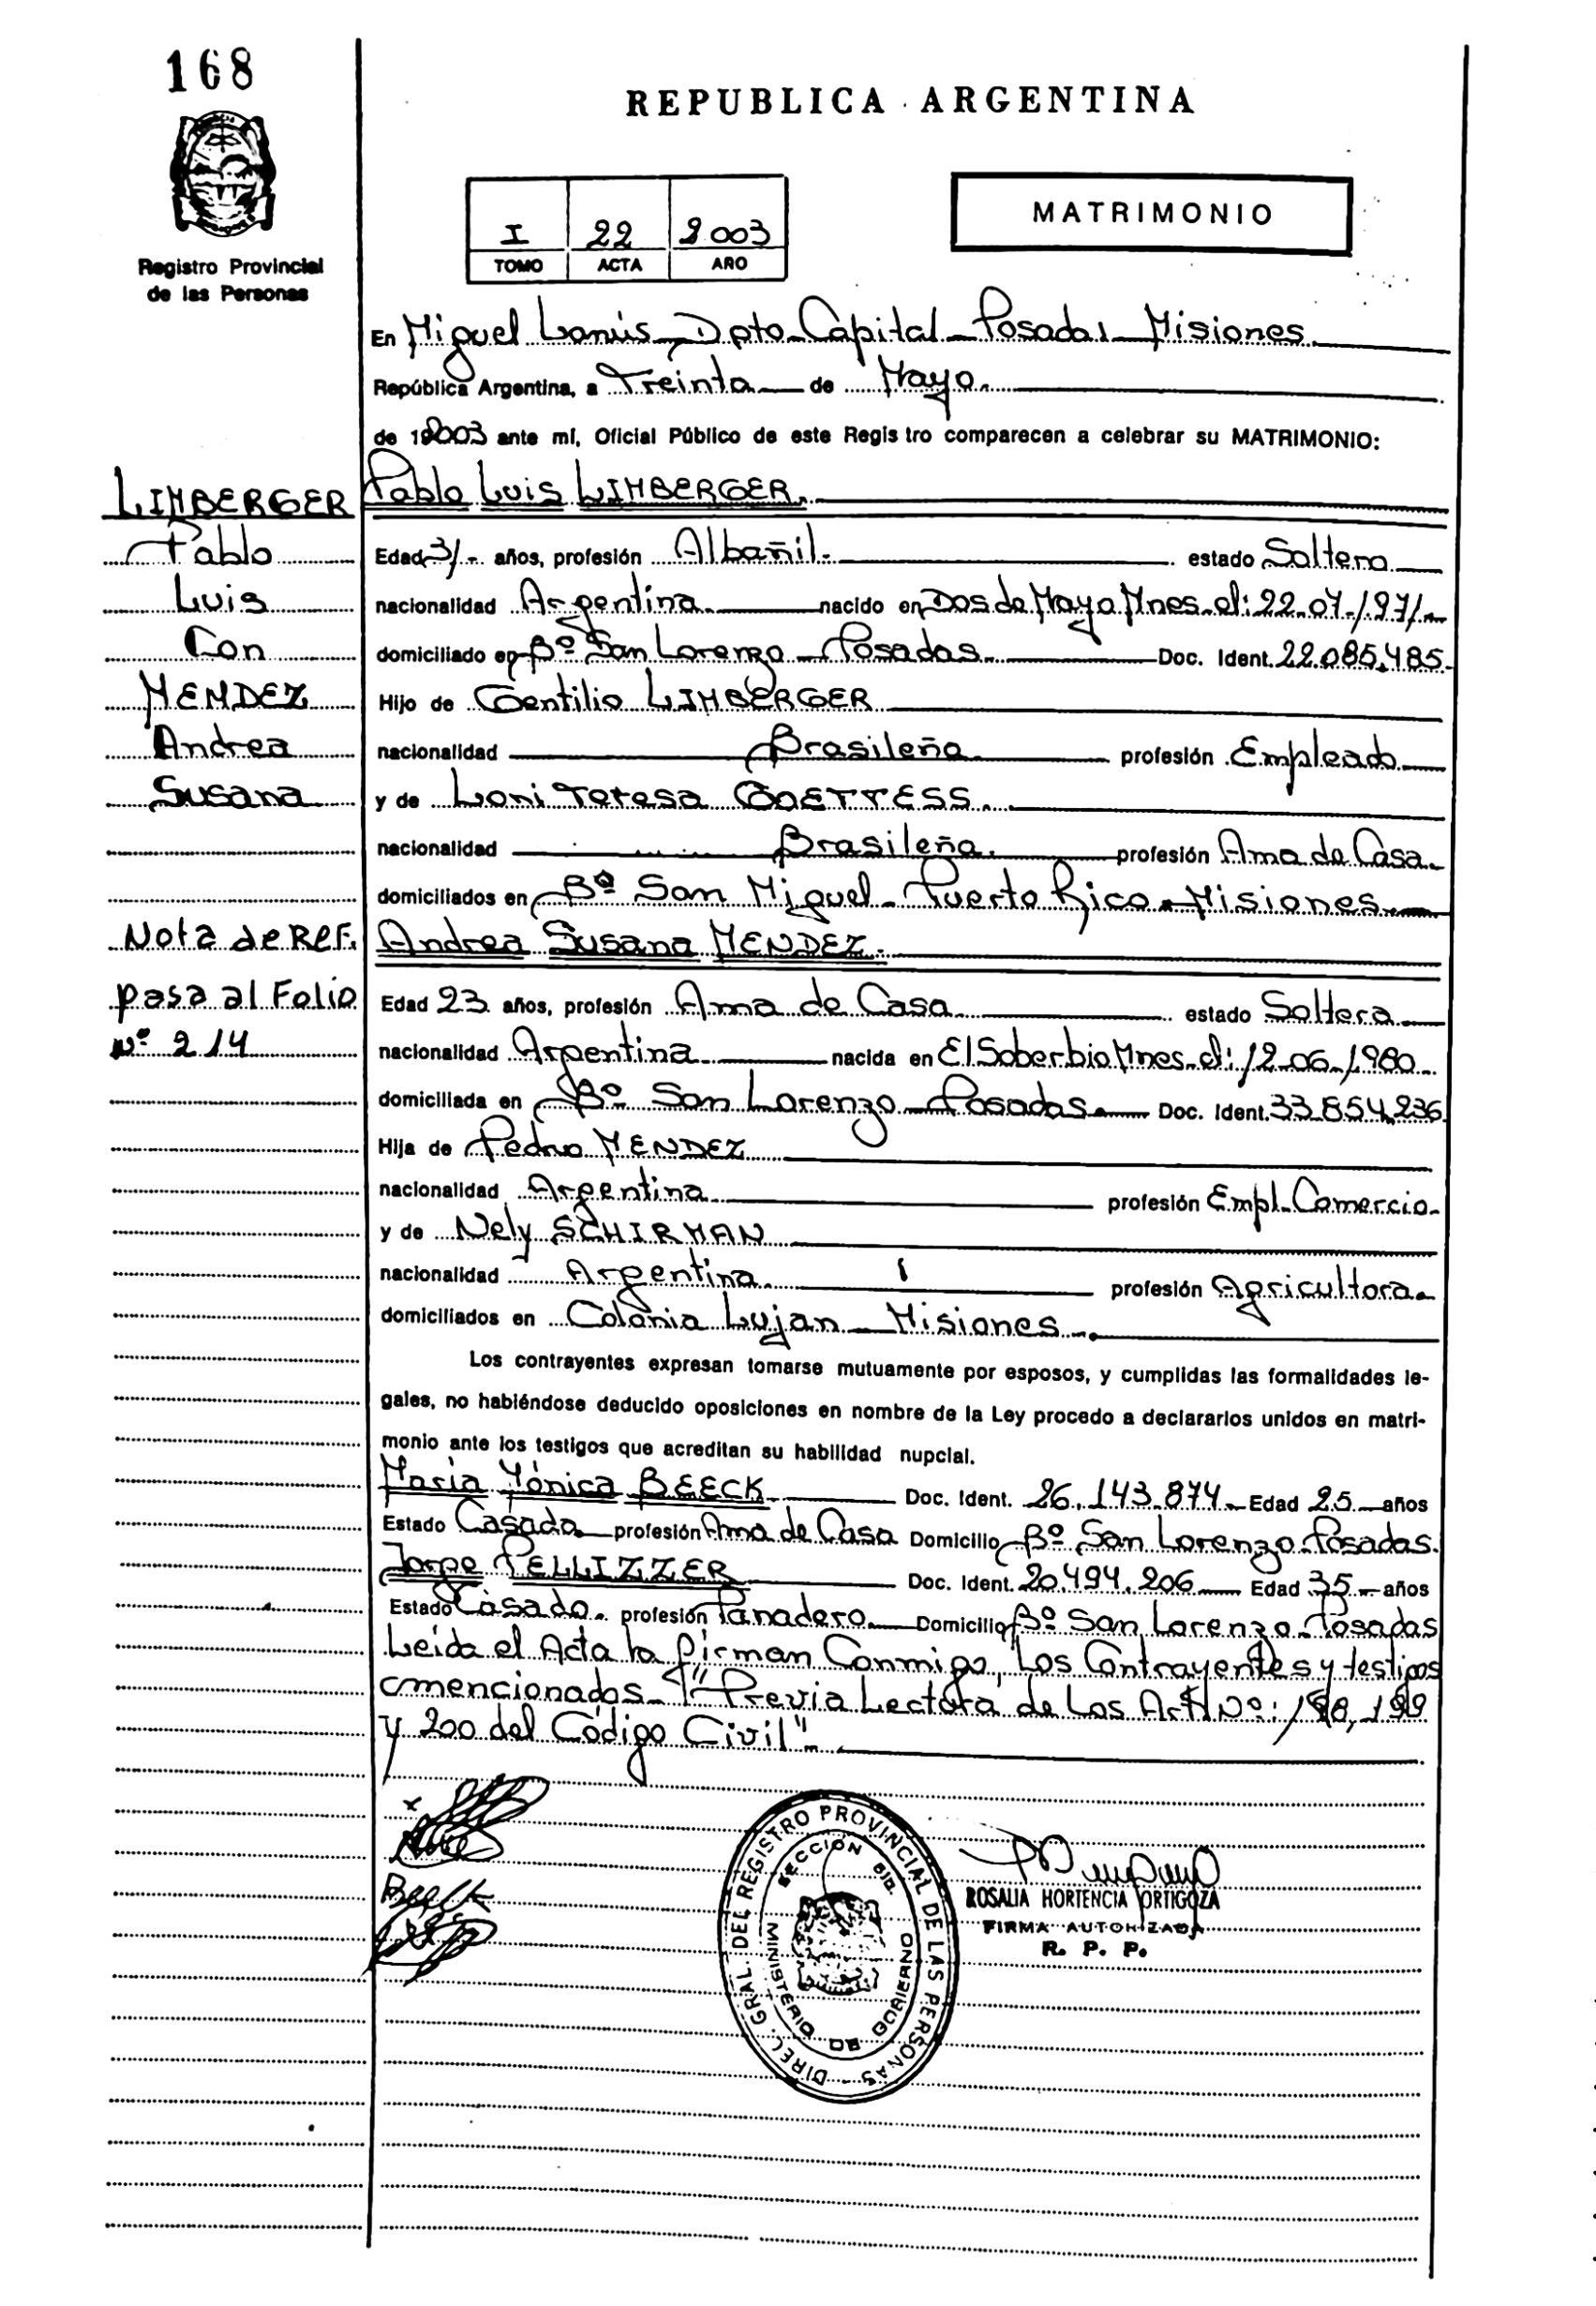 168
REPUBLICA ARGENTINA
I 22 2003
TOMO ACTA AÑO
MATRIMONIO
Registro Provincial
de las Personas
En Miguel Lanús - Dpto Capital - Posadas - Misiones.
República Argentina, a Treinta de Mayo.
de 2003 ante mí, Oficial Público de este Registro comparecen a celebrar su MATRIMONIO:
LIMBERGER
Pablo
Luis
Con
MENDEZ
Andrea
Susana
Nota de Ref.
pasa al Folio
Nº 214
Pablo Luis LIMBERGER.
Edad 31- años, profesión Albañil. estado Soltero
nacionalidad Argentina. nacido en Dos de Mayo Mnes. el: 22-07-1971.-
domiciliado en Bº San Lorenzo - Posadas. Doc. Ident. 22.085.485.
Hijo de Gentilio LIMBERGER
nacionalidad Brasileña profesión Empleado
y de Loni Teresa GOETTESS.
nacionalidad Brasileña. profesión Ama de Casa.
domiciliados en Bº San Miguel - Puerto Rico - Misiones
Andrea Susana MENDEZ.
Edad 23 años, profesión Ama de Casa estado Soltera
nacionalidad Argentina nacida en El Soberbio Mnes. el: 12-06-1980
domiciliada en Bº San Lorenzo - Posadas. Doc. Ident. 33.854.236
Hija de Pedro MENDEZ
nacionalidad Argentina profesión Empl. Comercio.
y de Nely SCHIRMAN
nacionalidad Argentina. profesión Agricultora.
domiciliados en Colonia Lujan - Misiones.
Los contrayentes expresan tomarse mutuamente por esposos, y cumplidas las formalidades le-
gales, no habiéndose deducido oposiciones en nombre de la Ley procedo a declararlos unidos en matri-
monio ante los testigos que acreditan su habilidad nupcial.
María Mónica BEECK Doc. Ident. 26.143.874 Edad 25 años
Estado Casada profesión Ama de Casa Domicilio Bº San Lorenzo Posadas.
Jorge PELLIZZER Doc. Ident. 20.494.206 Edad 35 años
Estado Casado. profesión Panadero. Domicilio Bº San Lorenzo - Posadas
Leída el Acta la firman Conmigo, Los Contrayentes y testigos
mencionados - "Previa Lectura de Los Art. Nº: 198, 199
y 200 del Código Civil"-
Beeck
DIREC. GRAL. DEL REGISTRO PROVINCIAL DE LAS PERSONAS
SECCIÓN
MINISTERIO DE GOBIERNO
ROSALIA HORTENCIA ORTIGOZA
FIRMA AUTORIZADA
R. P. P.